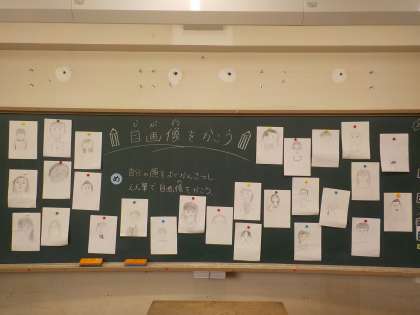 じ が ぞう
自画像をかこう
め
自分の顔をよくかんさつし
えん筆で自画像をかこう